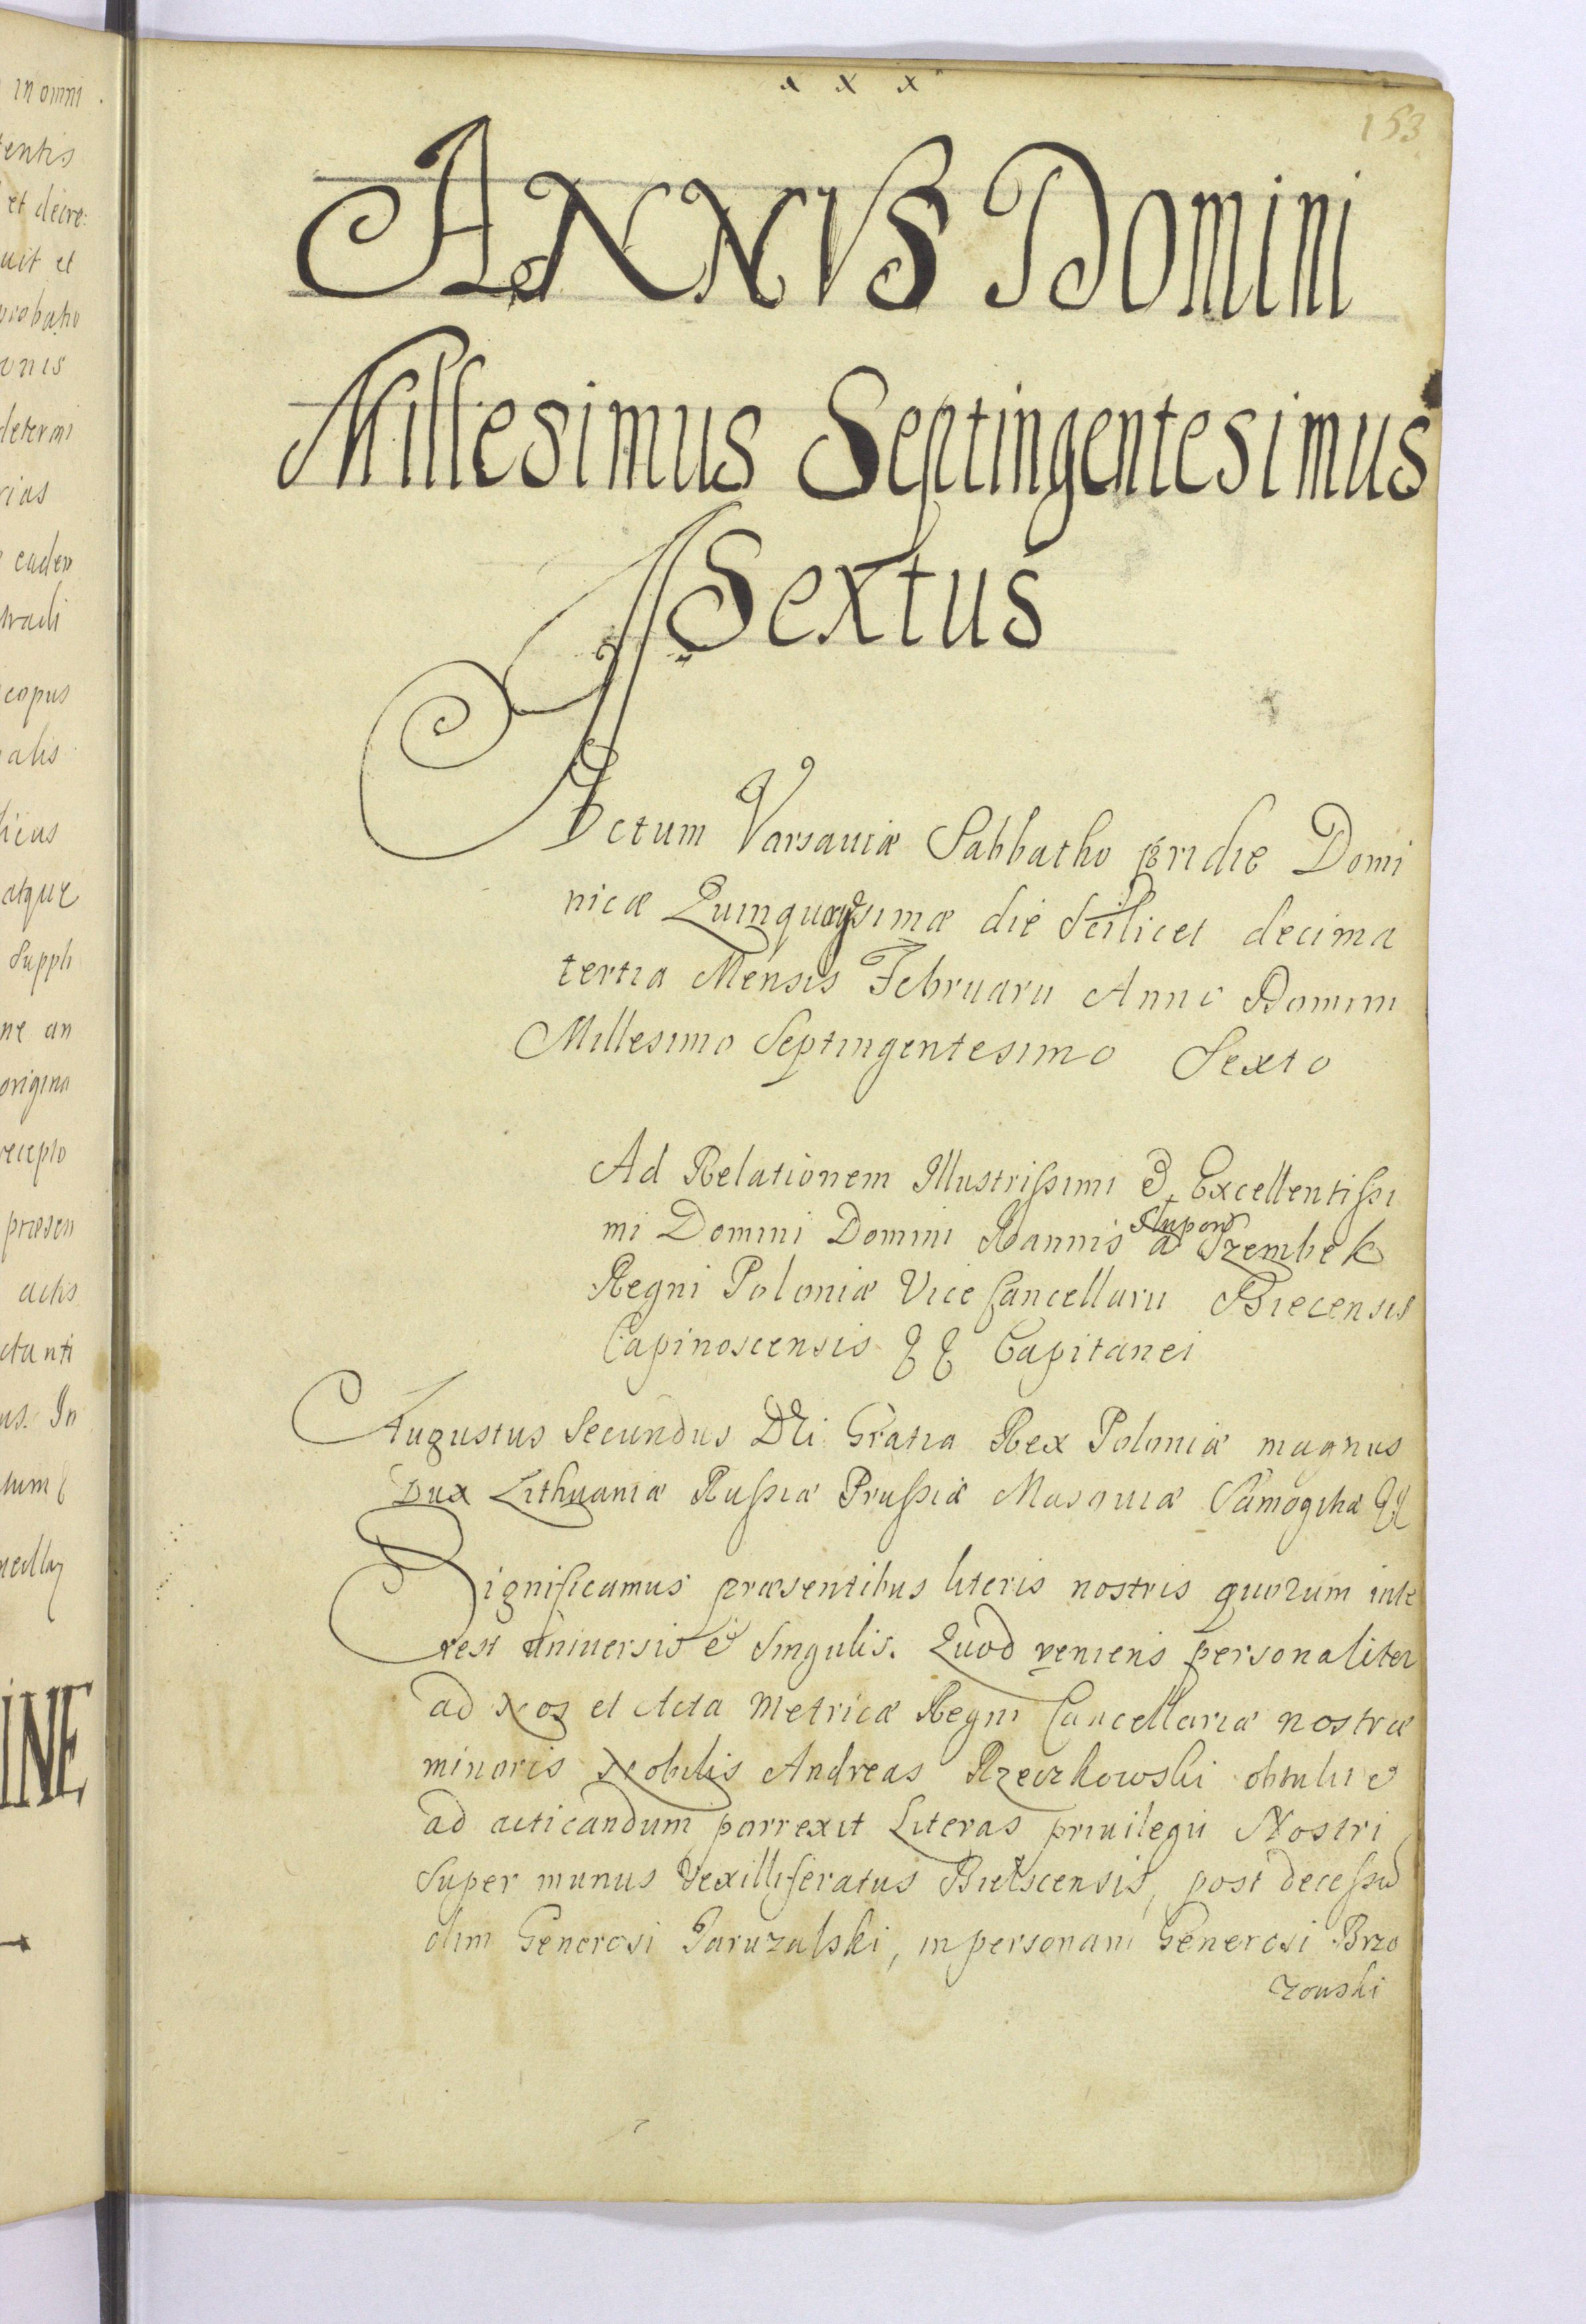 x x x
153
ANNVS Domini
Millesimus Septingentesimus
Sextus
Actum Varsauiæ Sabbatho pridie Domi
nicæ Quinquagesimæ die Scilicet decima
tertia Mensis Februarii Anno Domini
Millesimo Septingentesimo Sexto
Ad Relationem Illustrissimi & Excellentissi
mi Domini Domini Ioannis a Slupow Szembek
Regni Poloniæ Vice Cancellarii Biecensis
Capinoscensis Capitanei
Augustus Secundus Dei Gratia Rex Poloniæ magnus
Dux Lithuaniæ Russiæ Prussiæ Masouiæ Samogitiæ
Significamus præsentibus literis nostris quorum inte
rest uniuersis & Singulis. Quod veniens personaliter
ad Nos et Acta Metricæ Regni Cancellariæ nostræ
minoris Nobilis Andreas Rzeczkowski obtulit &
ad acticandum porrexit Literas priuilegii Nostri
Super munus Vexilliferatus Bielscensis, post decessu
olim Generosi Paruzalski, in personam Generosi Brzo
zouski
in omni
tentis
et decre:
uit et
probatio
onis
determi
rias
eaden
copus
alis
atque
Suppli
ne an
origina
recepto
præsen
actis
ctanti
us. In
INE